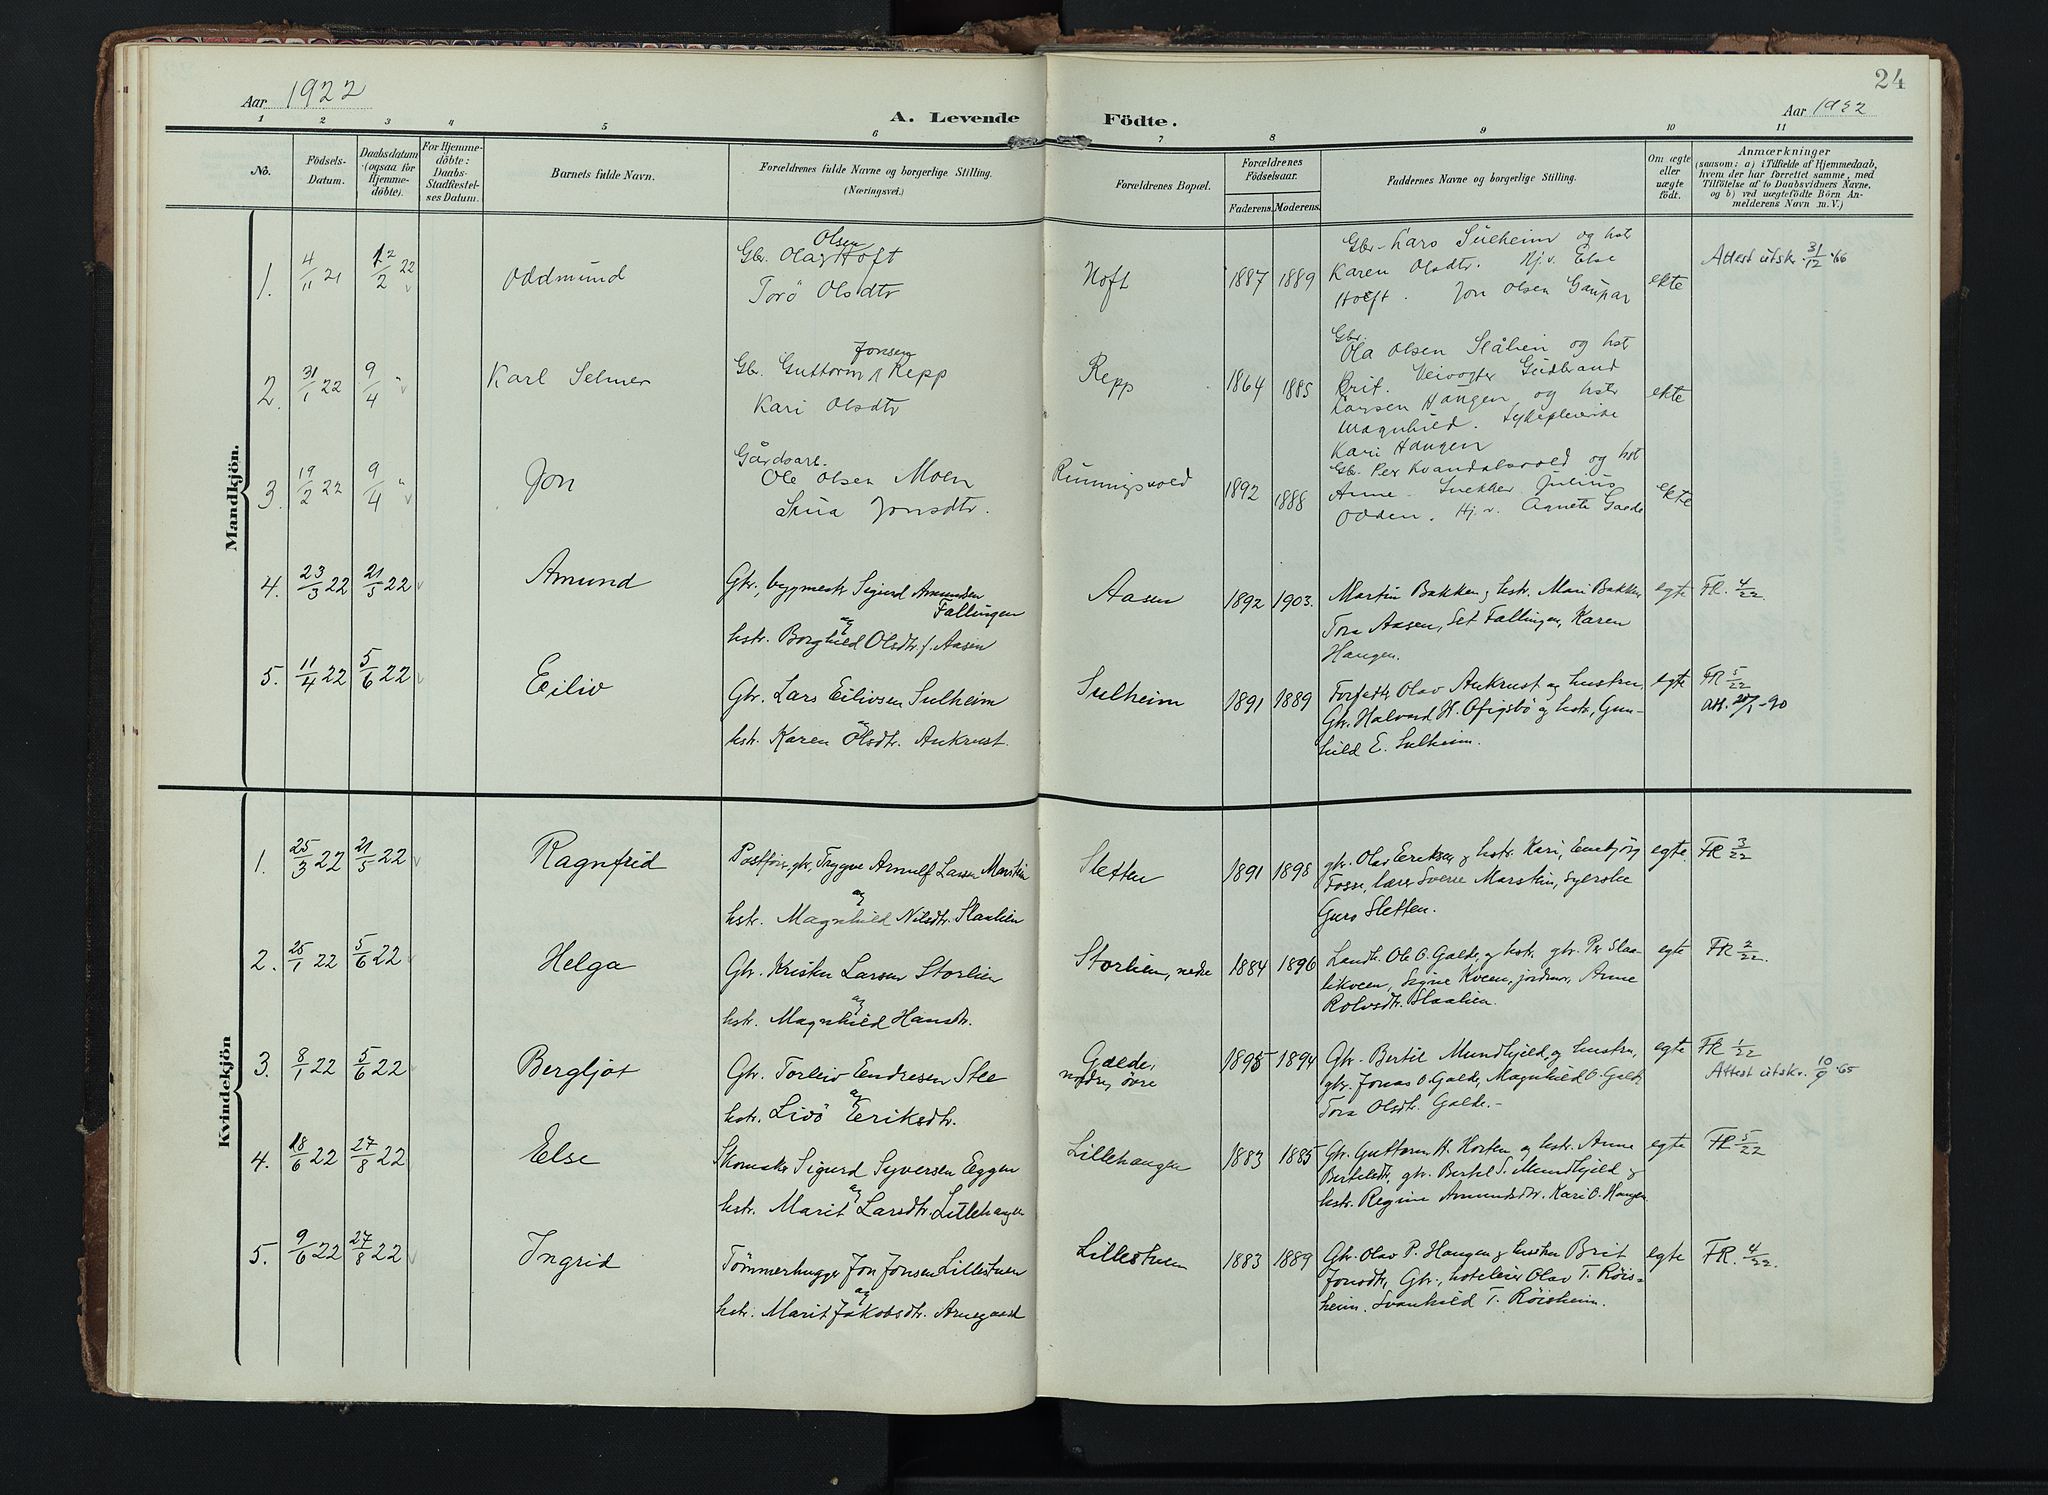 24
Aar 1922
A. Levende Födte.
Aar 1922
1 2 3 4 5 6 7 8 9 10 11
No.
Födsels-
Datum.
Daabsdatum
(ogsaa for
Hjemme-
döbte).
For Hjemme-
döbte:
Daabs-
Stadfæstel-
ses Datum.
Barnets fulde Navn.
Forældrenes fulde Navne og borgerlige Stilling.
(Næringsvei.)
Forældrenes Bopæl.
Forældrenes
Födselsaar.
Faderens. Moderens.
Faddernes Navne og borgerlige Stilling.
Om ægte
eller
uægte
födt.
Anmærkninger
(saasom: a) i Tilfælde af Hjemmedaab,
hvem der har forrettet samme, med
Tilföielse af to Daabsvidners Navne,
og b) ved uægtefödte Börn An-
melderens Navn m. V.)
Mandkjön.
1. 4/11 21 12/2 22 Oddmund
Gbr. Olav Olsen Hoft
Torö Olsdtr
Hoft 1887 1889
Gbr. Lars Sulheim og hstr
Karen Olsdtr. Hj.v. Else
Hoft. Jon Olsen Gaupar
ekte
Attest utskr. 31/12-66
2. 31/1 22 9/4 " Karl Selmer
Gb. Guttorm Jonsen Repp
Kari Olsdtr
Repp 1864 1885
Gbr.
Ola Olsen Slålien og hstr
Brit. Veivogter Gudbrand
Larsen Haugen og hstr
Magnhild. Sykepleierske
Kari Haugen
ekte
3. 19/2 22 9/4 " Jon
Gårdsarb.
Ole Olsen Moen
Jonsdtr.
1892 1888
Gb. Per Kvandalsvold og hst
Anne. Snekker Julius
Odden. Hj.v. Agnete Gaade
ekte
4. 23/3 22 21/5 22 Amund
Gbr., bygmestr Sigurd Amundsen
Fallingen
og
hstr. Borghild Olsdtr. f. Aasen
Aasen 1892 1903.
Martin Bakken og hstr. Mari Bakken
Tora Aasen, Set Fallingen, Karen
Haugen.
egte FR. 4/22
5. 11/4 22 5/6 22 Eiliv
Gbr. Lars Eilivsen Sulheim
og
hstr. Karen Olsdtr. Aukrust.
Sulheim 1891 1889
Olav Aukrust og hustru,
Gbr. Halvard H. Ofigsbö og hstr., Gun-
hild E. Sulheim.
egte FR 5/22
Att. -90
Kvindekjön
1. 25/3 22 21/5 22 Ragnfrid
gbr. Trygve Arnulf Larsen Marstein
og
hstr. Magnhild Nilsdtr. Slaalien
Sletten 1891 1898
gbr. Olav Eriksen og hstr. Kari,
Fosse, lærer Sverre Marstein, syerske
Guro Sletten.
egte FR 3/22
2. 25/1 22 5/6 22 Helga
Gbr. Kristen Larsen Storlien
og
hstr. Magnhild Hansdtr.
Storlien, nedre 1884 1896
Landh. Ole O. Galde, og hstr. gbr. Per Slaa-
likveen, Signe Kveen, jordmor, Anne
Rolvsdtr. Slaalien.
egte FR 2/22.
3. 8/1 22 5/6 22 Bergljot
Gbr. Torleiv Endresen Slee
og
hstr. Livö Eriksdtr.
Galde,
nordre, övre
1895 1894
Gbr. Bertil Mundhjeld, og hustru,
gbr. Jonas O. Galde, Magnhild O. Galde
Tora Olsdtr. Galde.-
egte FR 1/22
Attest utskr. 10/9-65
4. 18/6 22 27/8 22 Else
Skomaker Sigurd Syversen Eggen
og
hstr. Marit Larsdtr. Lillehaugen
Lillehaugen 1883 1885
Gbr. Guttorm H. Horten og hstr. Anne
Bertelsdtr., gbr. Bertel S. Mundhjeld og
hstr. Regine Amundsdtr. Kari O. Haugen
egte FR 5/22
5. 9/6 22 27/8 22 Ingrid
Tømmerhugger Jon Jonsen Lillestuen
og
hstr. Marit Jakobsdtr. Arnegaard
Lillestuen 1883 1889
Gbr. Olav P. Haugen og hustru Brit
Jonsdtr., Gbr., hoteleier Olav T. Røis-
heim. Svanhild T. Røisheim.
egte FR. 4/22.